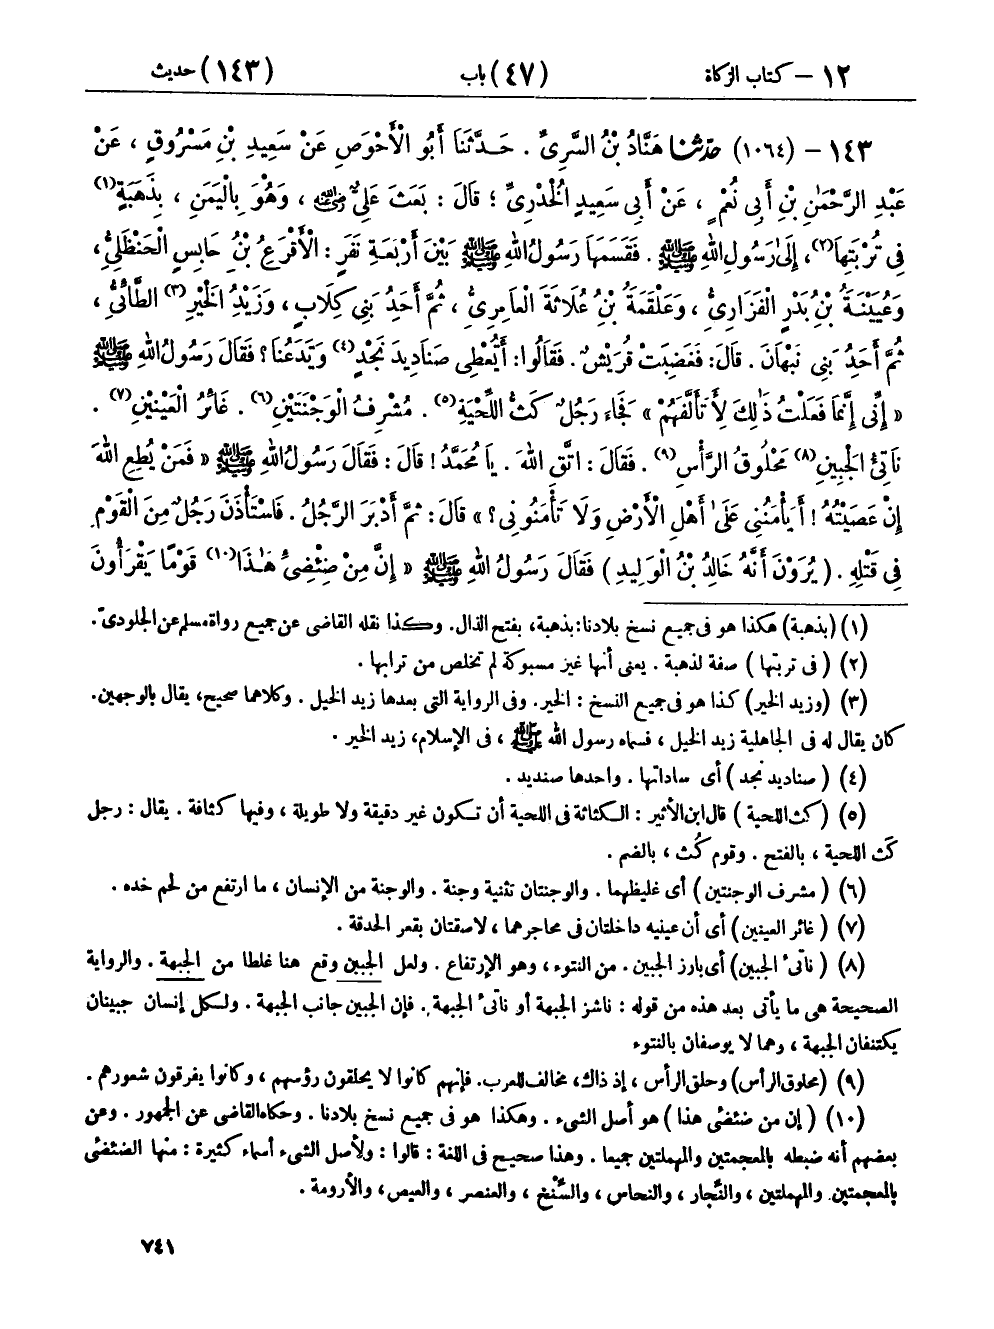 ١٢ – كتاب الزكاة (٤٧) باب (١٤٣) حديث
١٤٣ – (١٠٦٤) حَدَّثَنَا هَنَّادُ بْنُ السَّرِيِّ . حَدَّثَنَا أَبُو الْأَحْوَصِ عَنْ سَعِيدِ بْنِ مَسْرُوقٍ ، عَنْ
عَبْدِ الرَّحْمَٰنِ بْنِ أَبِي نُعْمٍ ، عَنْ أَبِي سَعِيدٍ الْخُدْرِيِّ ؛ قَالَ : بَعَثَ عَلِيٌّ رضي الله عنه ، وَهُوَ بِالْيَمَنِ ، بِذَهَبَةٍ(١)
فِي تُرْبَتِهَا(٢) ، إِلَىٰ رَسُولِ اللهِ ﷺ . فَقَسَمَهَا رَسُولُ اللهِ ﷺ بَيْنَ أَرْبَعَةِ نَفَرٍ : الْأَقْرَعُ بْنُ حَابِسٍ الْحَنْظَلِيُّ ،
وَعُيَيْنَةُ بْنُ بَدْرٍ الْفَزَارِيُّ ، وَعَلْقَمَةُ بْنُ عُلَاثَةَ الْعَامِرِيُّ ، ثُمَّ أَحَدُ بَنِي كِلَابٍ ، وَزَيْدُ الْخَيْرِ(٣) الطَّائِيُّ ،
ثُمَّ أَحَدُ بَنِي نَبْهَانَ . قَالَ : فَغَضِبَتْ قُرَيْشٌ . فَقَالُوا : أَيُعْطِي صَنَادِيدَ نَجْدٍ(٤) وَيَدَعُنَا ؟ فَقَالَ رَسُولُ اللهِ ﷺ
« إِنِّي إِنَّمَا فَعَلْتُ ذَٰلِكَ لِأَتَأَلَّفَهُمْ » فَجَاءَ رَجُلٌ كَثُّ اللِّحْيَةِ(٥) . مُشْرِفُ الْوَجْنَتَيْنِ(٦) . غَائِرُ الْعَيْنَيْنِ(٧) .
نَاتِئُ الْجَبِينِ(٨) مَحْلُوقُ الرَّأْسِ(٩) . فَقَالَ : اتَّقِ اللهَ . يَا مُحَمَّدُ ! قَالَ : فَقَالَ رَسُولُ اللهِ ﷺ « فَمَنْ يُطِعِ اللهَ
إِنْ عَصَيْتُهُ ! أَيَأْمَنُنِي عَلَىٰ أَهْلِ الْأَرْضِ وَلَا تَأْمَنُونِي ؟ » قَالَ : ثُمَّ أَدْبَرَ الرَّجُلُ . فَاسْتَأْذَنَ رَجُلٌ مِنَ الْقَوْمِ
فِي قَتْلِهِ . ( يُرَوْنَ أَنَّهُ خَالِدُ بْنُ الْوَلِيدِ ) فَقَالَ رَسُولُ اللهِ ﷺ « إِنَّ مِنْ ضِئْضِئِ هَٰذَا(١٠) قَوْمًا يَقْرَأُونَ
(١) (بذهبة) هكذا هو في جميع نسخ بلادنا : بذهبة ، بفتح الذال. وكذا نقله القاضي عن جميع رواة مسلم عن الجلودي .
(٢) ( في تربتها ) صفة لذهبة . يعني أنها غير مسبوكة لم تخلص من ترابها .
(٣) (وزيد الخير) كذا هو في جميع النسخ : الخير. وفي الرواية التي بعدها زيد الخيل . وكلاهما صحيح، يقال بالوجهين.
كان يقال له في الجاهلية زيد الخيل ، فسماه رسول الله ﷺ ، في الإسلام، زيد الخير .
(٤) ( صناديد نجد ) أي ساداتها . واحدها صنديد .
(٥) ( كث اللحية ) قال ابن الأثير : الكثاثة في اللحية أن تكون غير دقيقة ولا طويلة ، وفيها كثافة . يقال : رجل
كَث اللحية ، بالفتح . وقوم كُث ، بالضم .
(٦) ( مشرف الوجنتين ) أي غليظهما . والوجنتان تثنية وجنة . والوجنة من الإنسان ، ما ارتفع من لحم خده .
(٧) ( غائر العينين ) أي أن عينيه داخلتان في محاجرهما ، لاصقتان بقعر الحدقة .
(٨) ( ناتئ الجبين ) أي بارز الجبين . من النتوء ، وهو الإرتفاع . ولعل الجبين وقع هنا غلطا من الجبهة . والرواية
الصحيحة هي ما يأتي بعد هذه من قوله : ناشز الجبهة أو ناتئ الجبهة . فإن الجبين جانب الجبهة . ولكل إنسان جبينان
يكتنفان الجبهة ، وهما لا يوصفان بالنتوء
(٩) (محلوق الرأس) وحلق الرأس ، إذ ذاك، مخالف للعرب. فإنهم كانوا لا يحلقون رؤسهم ، وكانوا يفرقون شعورهم .
(١٠) ( إن من ضئضئ هذا ) هو أصل الشيء . وهكذا هو في جميع نسخ بلادنا . وحكاه القاضي عن الجمهور . وعن
بعضهم أنه ضبطه بالمعجمتين والمهملتين جميعا . وهذا صحيح في اللغة : قالوا : ولأصل الشيء أسماء كثيرة : منها الضئضئ
بالمعجمتين والمهملتين ، والنَّجار ، والنحاس ، والسِّنْخ ، والعنصر ، والعيص، والأرومة .
٧٤١